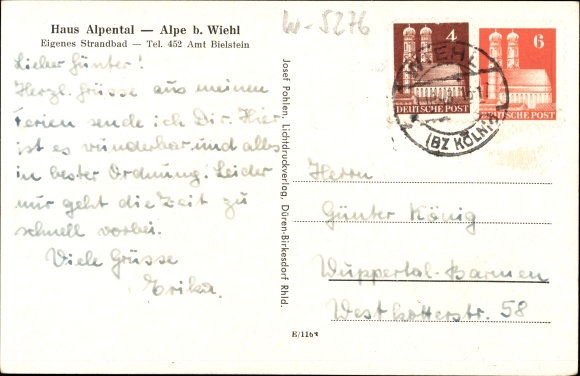 Haus Alpental — Alpe b. Wiehl
Eigenes Strandbad — Tel. 452 Amt Bielstein
W-5276
4
DEUTSCHE POST
6
DEUTSCHE POST
WIEHL
(BZ KÖLN)
Lieber Günter!
Herzl. Grüsse aus meinen
Ferien sende ich Dir. Hier
ist es wunderbar und alles
in bester Ordnung. Leider
nur geht die Zeit zu
schnell vorbei.
Viele Grüsse
Erika.
Josef Pohlen, Lichtdruckverlag, Düren-Birkesdorf Rhld.
Herrn
Günter König
Wuppertal-Barmen
Westkotterstr. 58